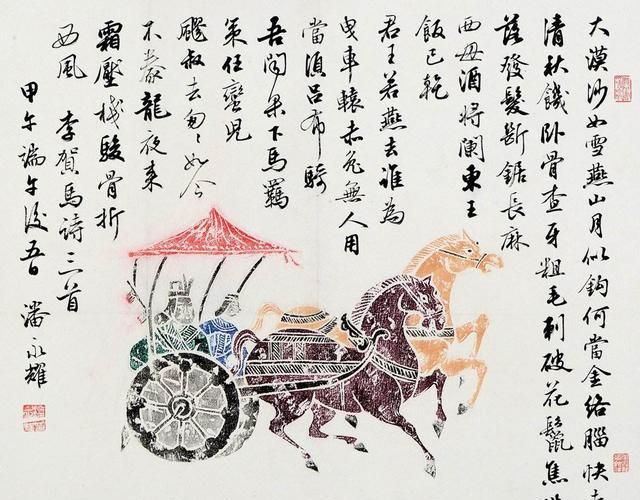 大漠沙如雪燕山月似鉤何當金络腦快
清秋饑卧骨查牙粗毛刺破花鬣焦
落發髮斷鋸長麻
西母酒將闌東王
飯已乾
君王若燕去誰為
曳車轅赤兔無人用
當須吕布騎
吾聞果下馬羈
策任蠻兒
飂叔去匆々如今
不豢龍夜来
霜壓棧駿骨折
西風 李賀馬詩三首
甲午端午後吾日 潘永耀